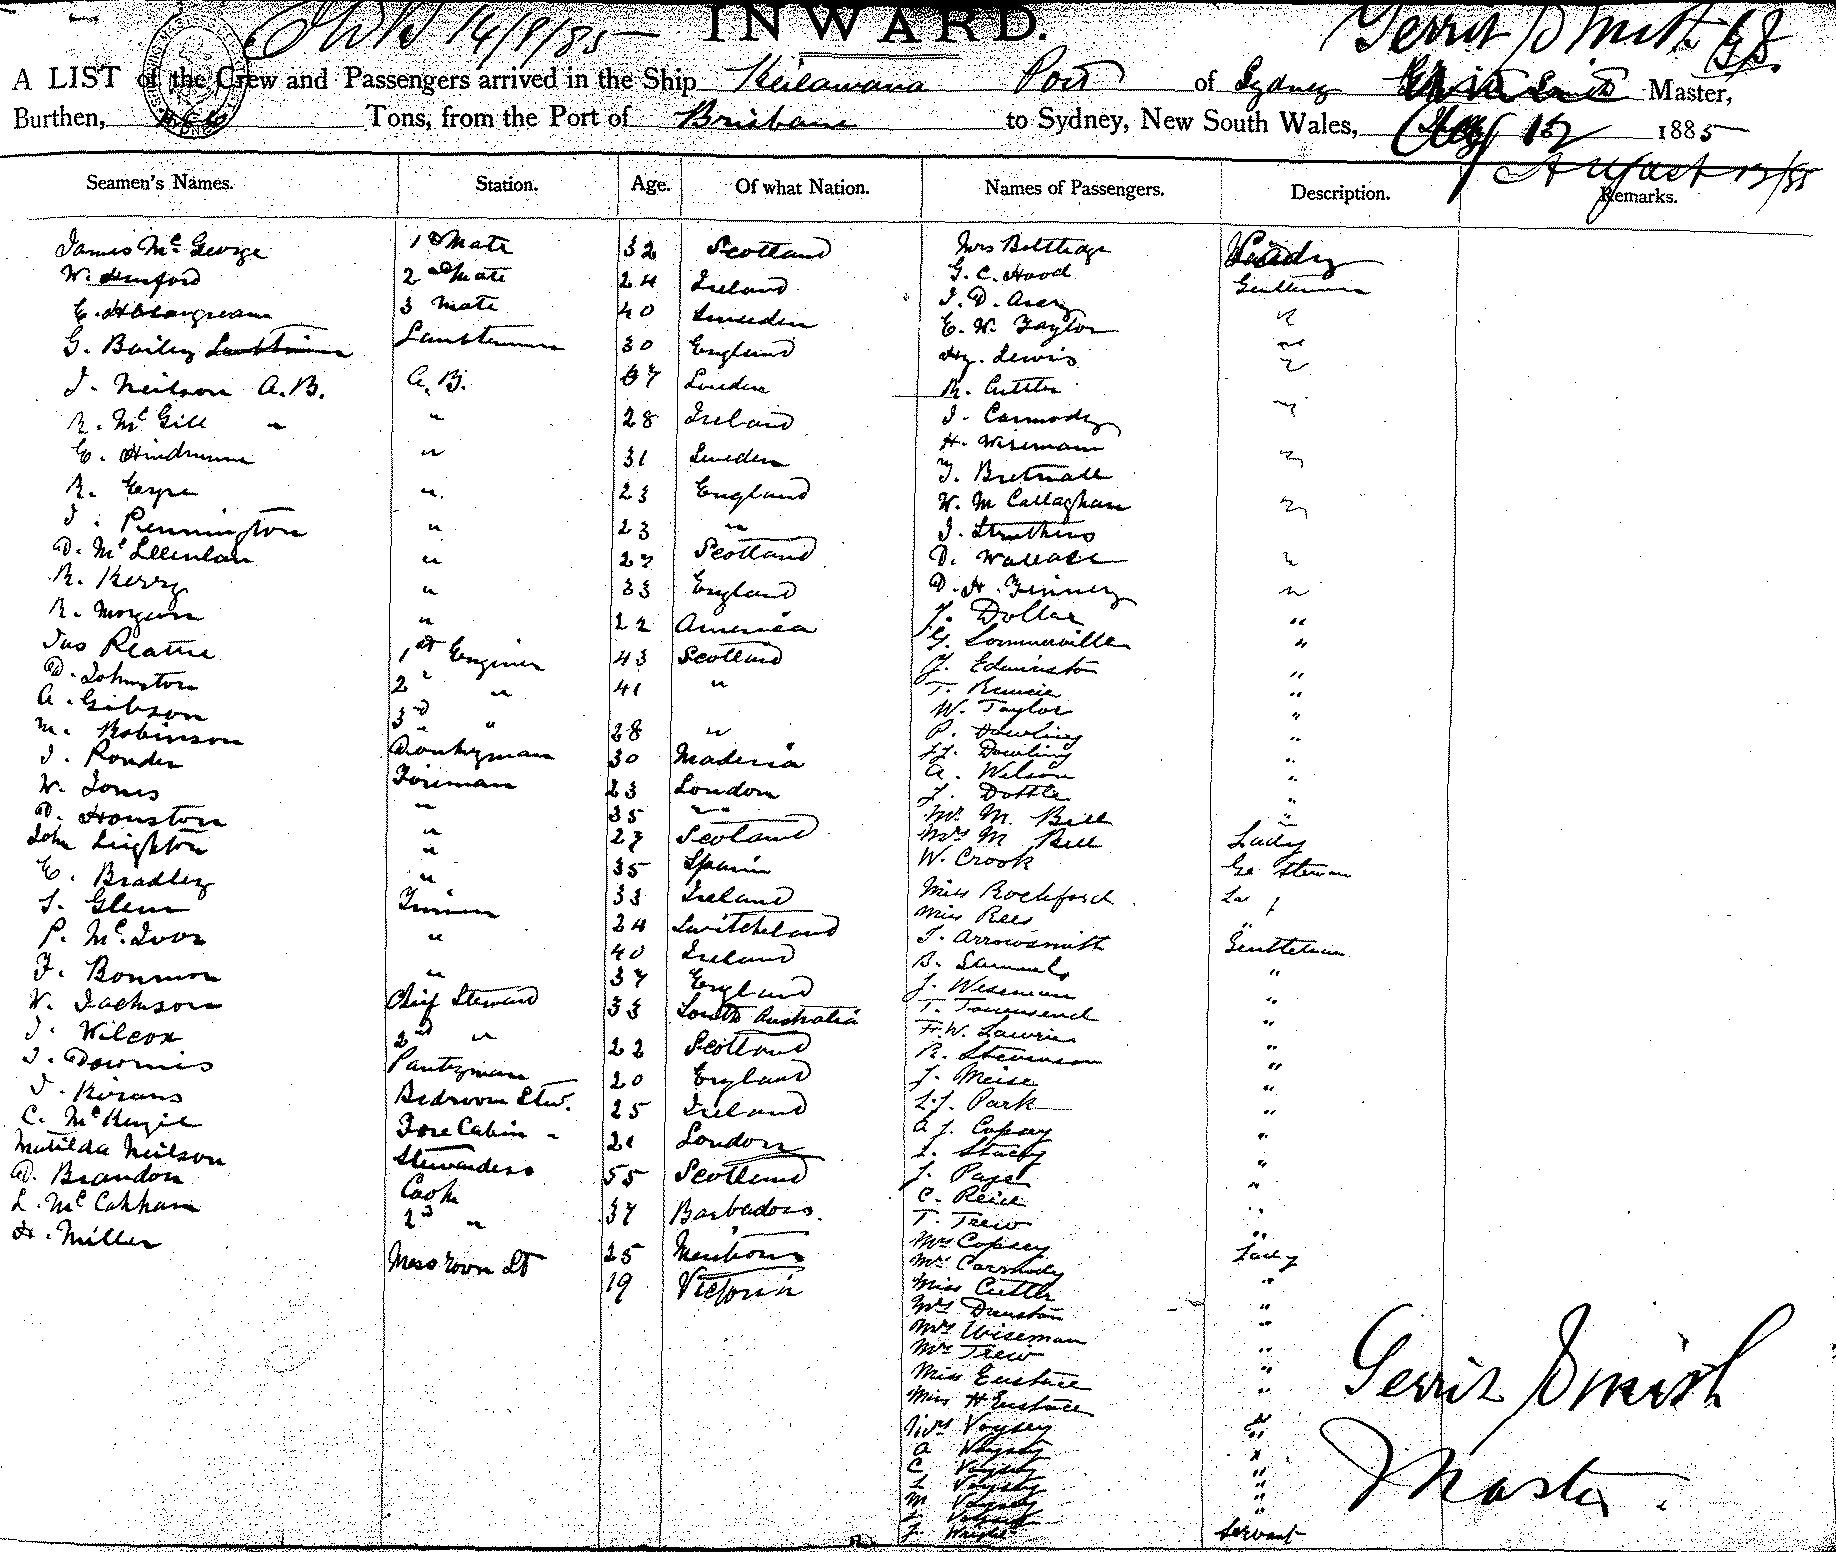 INWARD.
14/8/85 Gerrit Smith
A LIST of the Crew and Passengers arrived in the Ship Keilawarra Port of Sydney Master,
Burthen, Tons, from the Port of Brisbane to Sydney, New South Wales, 1885
August 13/85
Seamen's Names. Station. Age. Of what Nation. Names of Passengers. Description. Remarks.
James Mc George 1st Mate 32 Scotland Mrs Lady
W. Hanford 2nd Mate 24 Ireland G. C. Hood Gentleman
E. 3 Mate 40 Sweeden J. D. Avery "
G. Bailey Lamptrimmer 30 England E. W. Taylor "
J. Neilson A.B. A.B. Sweden Hy. Lewis "
R. Mc Gill " " 28 Ireland R. Cutler
E. " 31 Sweden J. Carmody "
R. Eyre " 23 England H. Wiseman
J. Pennington " 23 " T. Bretnall "
D. Mc " 27 Scotland W. M Callaghan "
R. Kerry " 33 England J. Struthers
R. Morgan " 22 America D. Wallace "
Jas 1st Engineer 43 Scotland D. H. Finney "
D. Johnston 2 " 41 " J. Dollar "
A. Gibson 3rd " 28 " G. Sommerville "
M. Robinson Donkeyman 30 Maderia J. Edmiston "
J. Ronder Fireman 23 London T. Runcie "
W. Jones " 35 " W. Taylor "
D. Houston " 27 Scotland P. Dowling "
John Leighton " 35 Spain J. Dowling "
E. Bradley " 33 Ireland A. Wilson "
S. Glenn Trimmer 24 Switcheland J. Dottle "
P. Mc Ivor " 40 Ireland Mr M. Bell "
F. Bonmon " 37 England Mrs M Bell Lady
W. Jackson Chief Steward 33 South Australia W. Crook
J. Wilcox 2nd " 22 Scotland Miss Rochford
J. Downis Pantryman 20 England Miss Rees "
J. Kirans Bedroom Stew. 25 Ireland J. Arrowsmith Gentleman
C. Mc Kenzie Fore Cabin " 21 London B. Samuels "
Matilda Neilson Stewardess 55 Scotland J. Wiseman "
D. Brandon Cook 37 Barbadoes T. Townsend "
L. Mc Cakham 2nd " 25 F. W. Lawrie "
H. Miller Mess room St 19 Victoria R. Stevenson "
J. Meise "
J. Park "
A J. Copsey "
J. Stacey "
J. Page "
C. Reid "
T. Trew "
Mrs Copsey Lady
Mrs Carmody "
Miss Cutler "
Mrs Dunston "
Mrs Wiseman "
Mrs Trew "
Miss Eustace "
Miss H Eustace "
Mrs Voysey "
A Voysey "
C Voysey "
L Voysey "
M Voysey "
J Wright Servant
Gerrit Smith
Master.